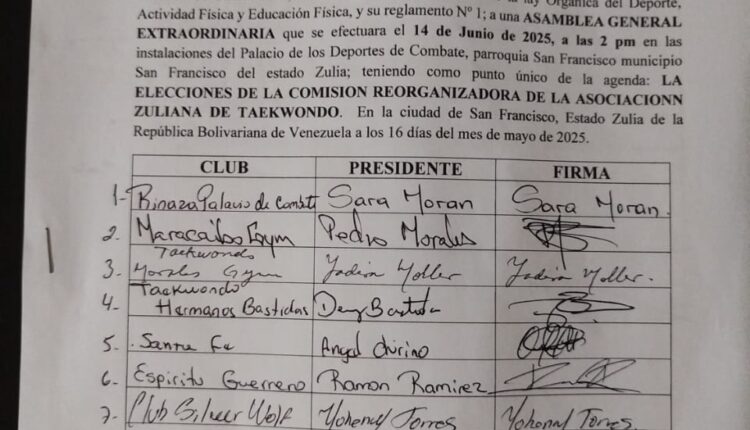 ley Orgánica del Deporte,
Actividad Física y Educación Física, y su reglamento Nº 1; a una ASAMBLEA GENERAL
EXTRAORDINARIA que se efectuara el 14 de Junio de 2025, a las 2 pm en las
instalaciones del Palacio de los Deportes de Combate, parroquia San Francisco municipio
San Francisco del estado Zulia; teniendo como punto único de la agenda: LA
ELECCIONES DE LA COMISION REORGANIZADORA DE LA ASOCIACIONN
ZULIANA DE TAEKWONDO. En la ciudad de San Francisco, Estado Zulia de la
República Bolivariana de Venezuela a los 16 días del mes de mayo de 2025.
CLUB PRESIDENTE FIRMA
1- Palacio de Sara Moran Sara Moran.
2- Maracaibo Gym Pedro Morales
3- Taekwondo
Morales Gym Yadira Yadira
4- Taekwondo
Hermanos Bastidas
5- Santa Fe Angel Chirino
6- Espiritu Guerrero Ramon Ramirez
7- Club Silver Wolf Torres Torres